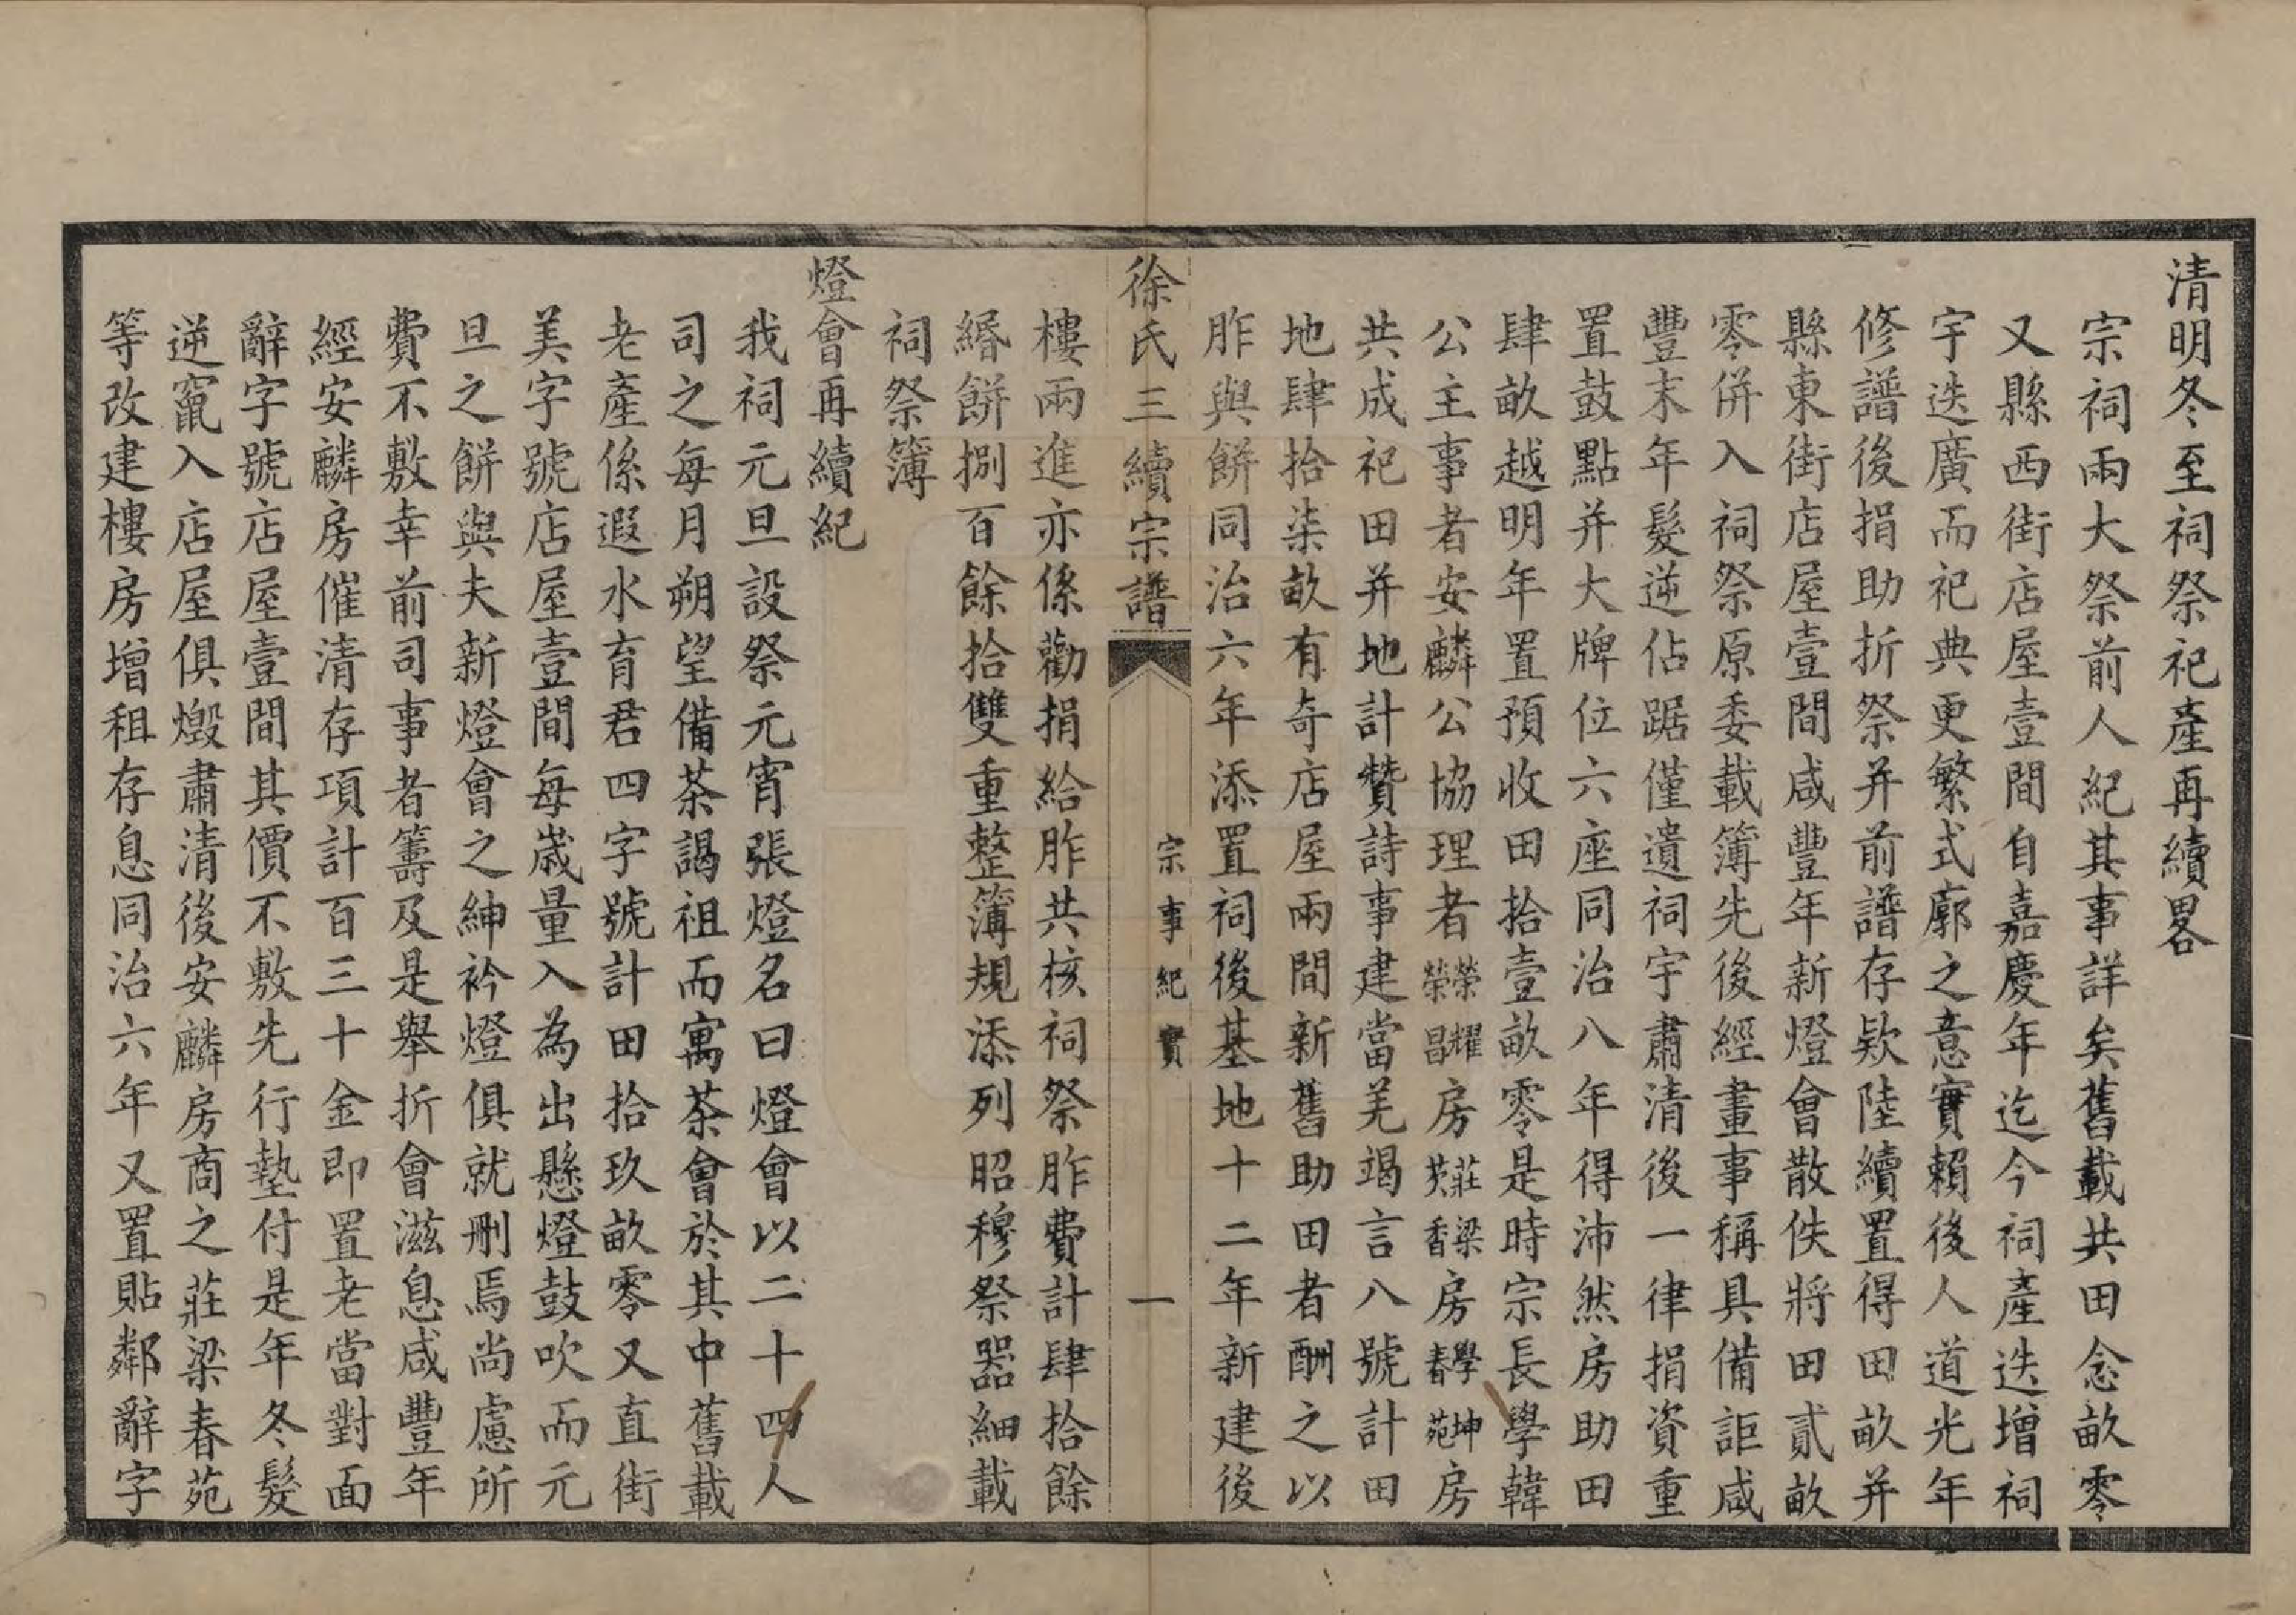 清明冬至祠祭祀產再續畧
宗祠兩大祭前人紀其事詳矣舊載共田念畝零
又縣西街店屋壹間自嘉慶年迄今祠產迭增祠
宇迭廣而祀典更繁式廓之意實賴後人道光年
修譜後捐助折祭并前譜存欵陸續置得田畝并
縣東街店屋壹間咸豐年新燈會散佚將田貳畝
零併入祠祭原委載簿先後經畫事稱具備詎咸
豐末年髮逆佔踞僅遺祠宇肅清後一律捐資重
置鼓點并大牌位六座同治八年得沛然房助田
肆畝越明年置預收田拾壹畝零是時宗長學韓
公主事者安麟公協理者榮耀榮昌房莊梁芖香房學坤春苑房
共成祀田并地計贊詩事建當羌竭言八號計田
地肆拾柒畝有奇店屋兩間新舊助田者酬之以
胙與餅同治六年添置祠後基地十二年新建後
徐氏三續宗譜
宗事紀實
一
樓兩進亦係勸捐給胙共核祠祭胙費計肆拾餘
緡餅捌百餘拾雙重整簿規添列昭穆祭器細載
祠祭簿
燈會再續紀
我祠元旦設祭元宵張燈名曰燈會以二十四人
司之每月朔望備茶謁祖而寓茶會於其中舊載
老產係遐水育君四字號計田拾玖畝零又直街
美字號店屋壹間每歲量入為出懸燈鼓吹而元
旦之餅與夫新燈會之紳衿燈俱就刪焉尚慮所
費不敷幸前司事者籌及是舉折會滋息咸豐年
經安麟房催清存項計百三十金即置老當對面
辭字號店屋壹間其價不敷先行墊付是年冬髮
逆竄入店屋俱燬肅清後安麟房商之莊梁春苑
等改建樓房增租存息同治六年又置貼鄰辭字